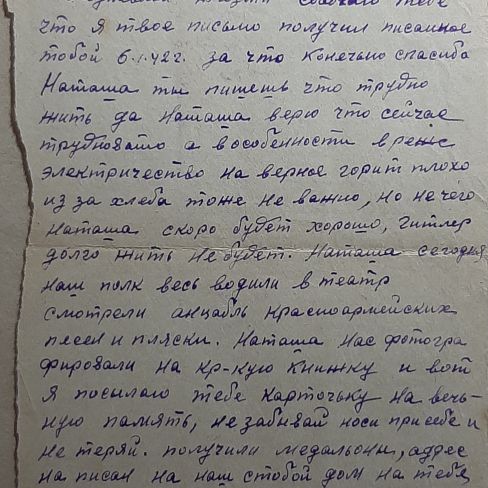 сообщаю тебе
что я твое письмо получил писанное
тобой 6.1.42г. за что конечьно спасиба
Наташа ты пишешь что трудно
жить да Наташа верю что сейчас
трудновато а в особенности в реже
электричество на верное горит плохо
из за хлеба тоже не важно, но не чего
Наташа скоро будет хорошо, Гитлер
долго жить не будет. Наташа сегодня
наш полк весь водили в театр
смотрели анцабль красноармейских
песен и пляски. Наташа нас фотогра
фировали на кр-кую книжку и вот
я посылаю тебе карточьку на вечь-
ную память, не забывай носи при себе и
не теряй. получили медальоны, аддес
на писан на наш стобой дом на тебя,